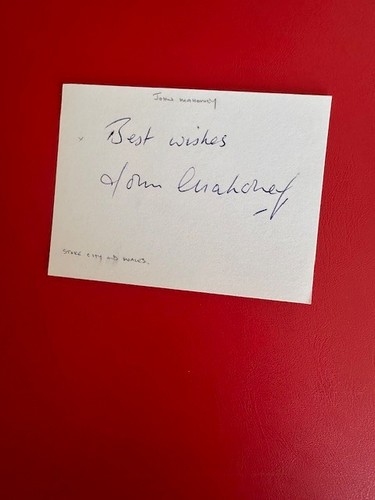 JOHN MAHONEY
Best wishes
John Mahoney
STOKE CITY AND WALES.